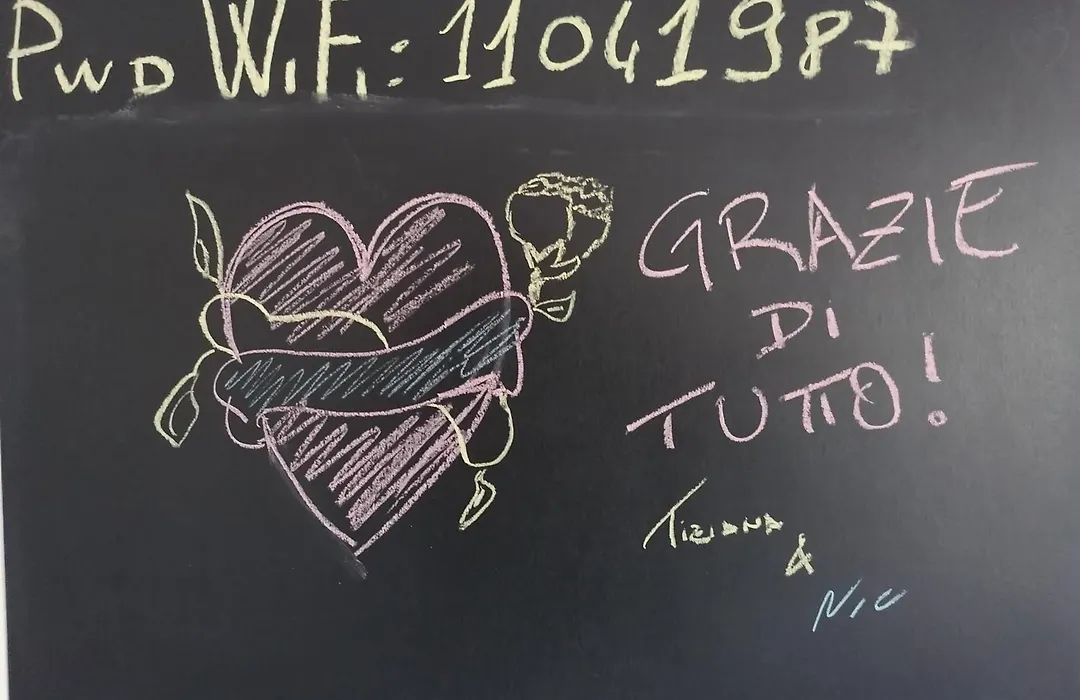 PWD WiFi: 11041987
GRAZIE
Di
TUTTO!
TIZIANA
&
NIC